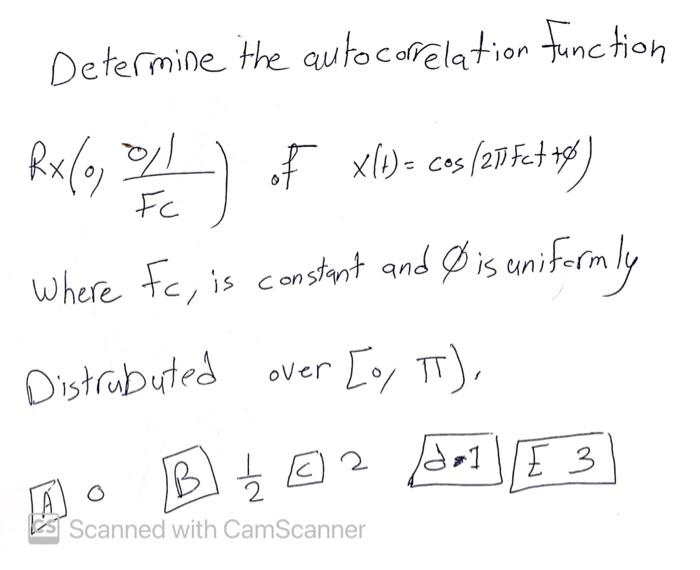 Determine the autocorrelation function
Rx(0, 0,1/Fc) of x(t) = cos(2πFct+ø)
where Fc, is constant and Ø is uniformly
Distrubuted over [0, π).
A 0 B 1/2 C 2 d.1 E 3
CS Scanned with CamScanner